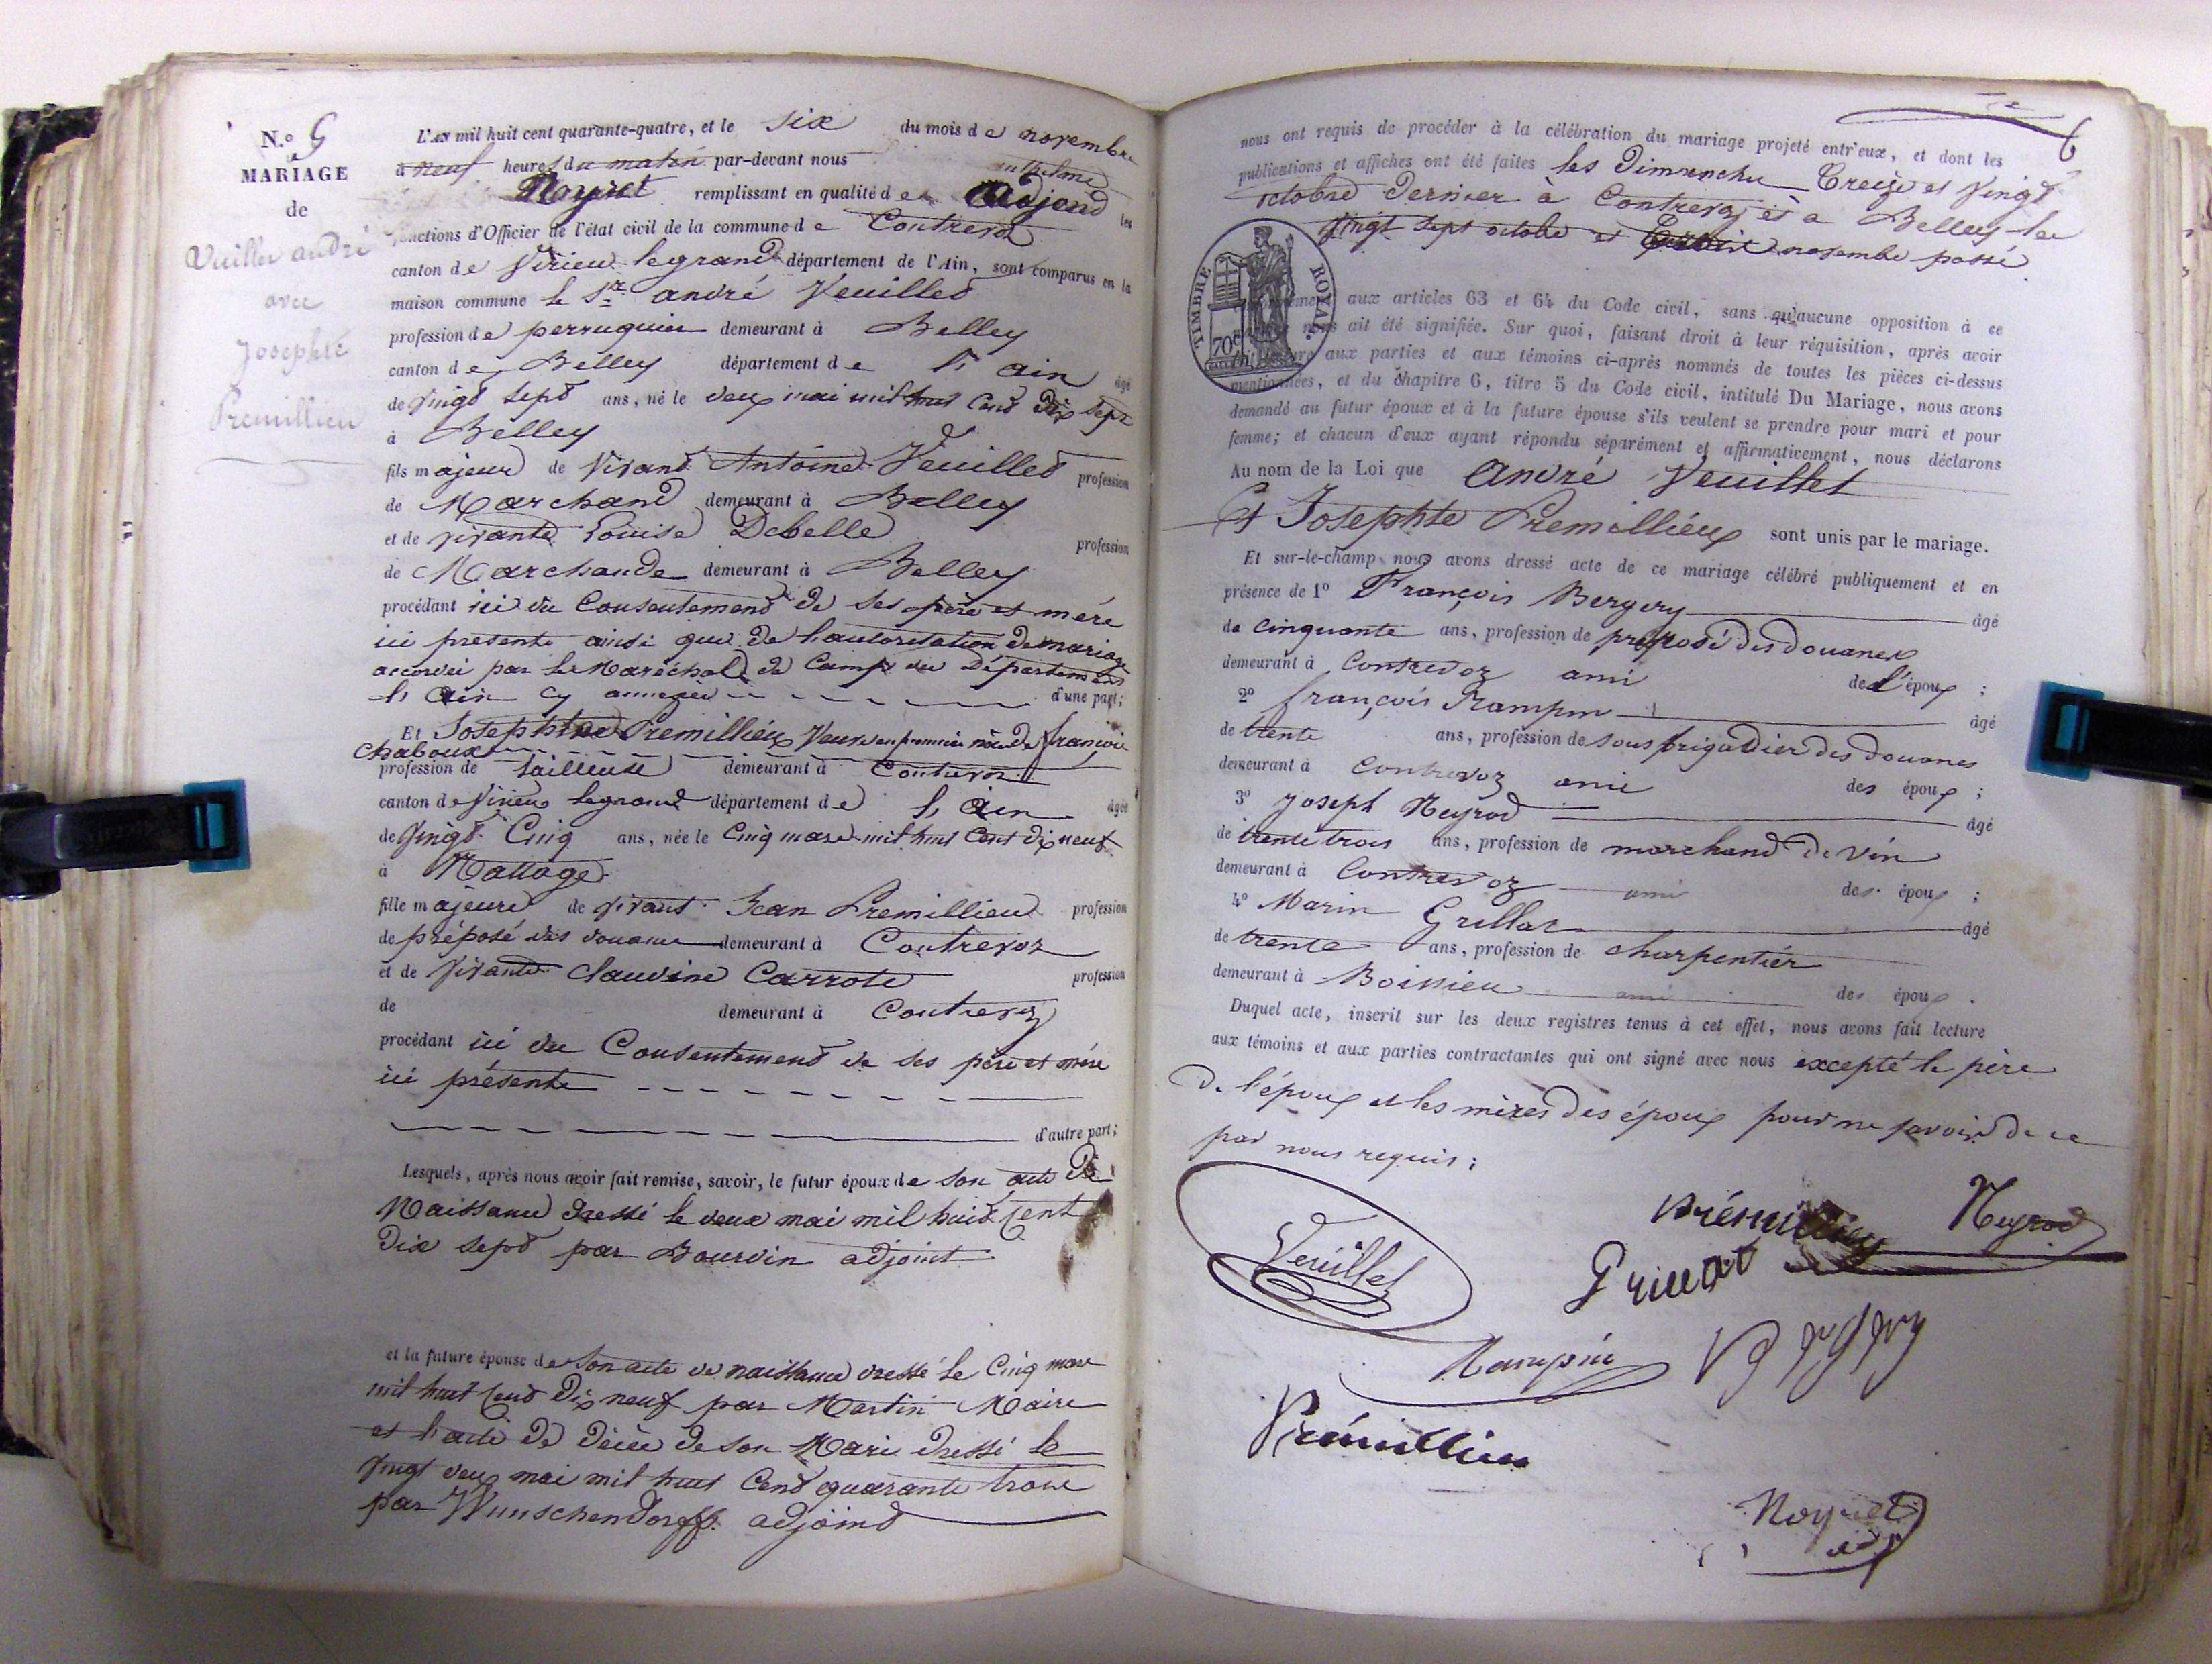 N.o 9
MARIAGE
de
Vuillet andré
avec
Josephte
Premillieu
L'AN mil huit cent quarante-quatre, et le six du mois de novembre
à neuf heures du matin par-devant nous anthelme
Noyret remplissant en qualité de adjoind les
fonctions d'Officier de l'état civil de la commune de Contrevoz
canton de Virieu legrand département de l'Ain, sont comparus en la
maison commune le Sr andré Veuillet
profession de perruquier demeurant à Belley
canton de Belley département de l'ain âgé
de vingt sept ans, né le deux mai mil huit cent dix sept
à Belley
fils majeur de vivant Antoine Veuillet profession
de Marchand demeurant à Belley
et de vivante Louise Debelle profession
de Marchande demeurant à Belley
procédant ici du Consentement de ses père et mère
ici présente ainsi que de l'autorisation de mariage
accordé par le Maréchal de Camp du Département
l'ain cy annexée d'une part;
Et Josephte Premillieu Veuve en premier nôce de françois
Chaboux
profession de tailleuse demeurant à Contrevoz
canton de Virieu legrand département de l'ain âgée
de vingt Cinq ans, née le Cinq mars mil huit Cent dix neuf
à Nattage
fille majeure de vivant Jean Premillieu profession
de préposé des douanes demeurant à Contrevoz
et de vivante Claudine Carrote profession
de demeurant à Contrevoz
procédant ici du Consentement de ses père et mère
ici présente
d'autre part;
Lesquels, après nous avoir fait remise, savoir, le futur époux de son acte de
Naissance dressé le deux mai mil huit cent
dix sept par Bourdin adjoint
et la future épouse de son acte de naissance dressé le Cinq mars
mil huit cent dix neuf par Martin Maire
et l'acte de décès de son Mari dressé le
vingt deux mai mil huit Cent quarante trois
par Wunschendorff adjoind
6
nous ont requis de procéder à la célébration du mariage projeté entr'eux, et dont les
publications et affiches ont été faites les dimanches Treize et Vingt
octobre dernier à Contrevoz et a Belley les
vingt sept octobre et novembre passé
aux articles 63 et 64 du Code civil, sans qu'aucune opposition à ce
ait été signifiée. Sur quoi, faisant droit à leur réquisition, après avoir
aux parties et aux témoins ci-après nommés de toutes les pièces ci-dessus
mentionnées, et du chapitre 6, titre 5 du Code civil, intitulé Du Mariage, nous avons
demandé au futur époux et à la future épouse s'ils veulent se prendre pour mari et pour
femme; et chacun d'eux ayant répondu séparément et affirmativement, nous déclarons
Au nom de la Loi que André Veuillet
Et Josephte Premillieux sont unis par le mariage.
Et sur-le-champ nous avons dressé acte de ce mariage célébré publiquement et en
présence de 1o François Bergery âgé
de cinquante ans, profession de préposé des douanes
demeurant à Contrevoz ami de l'époux ;
2o françois Rampin âgé
de trente ans, profession de sous brigadier des douanes
demeurant à Contrevoz ami des époux ;
3o Joseph Neyrod âgé
de trente trois ans, profession de marchand de vin
demeurant à Contrevoz ami des époux ;
4o Marin Grillat âgé
de trente ans, profession de charpentier
demeurant à Boissieu ami des époux .
Duquel acte, inscrit sur les deux registres tenus à cet effet, nous avons fait lecture
aux témoins et aux parties contractantes qui ont signé avec nous excepté le père
de l'époux et les mères des époux pour ne savoir de ce
par nous requis ;
TIMBRE ROYAL
70c
Prémillieu
Neyrod
Veuillet
Rampin
Prémillieu
Noyret
adj